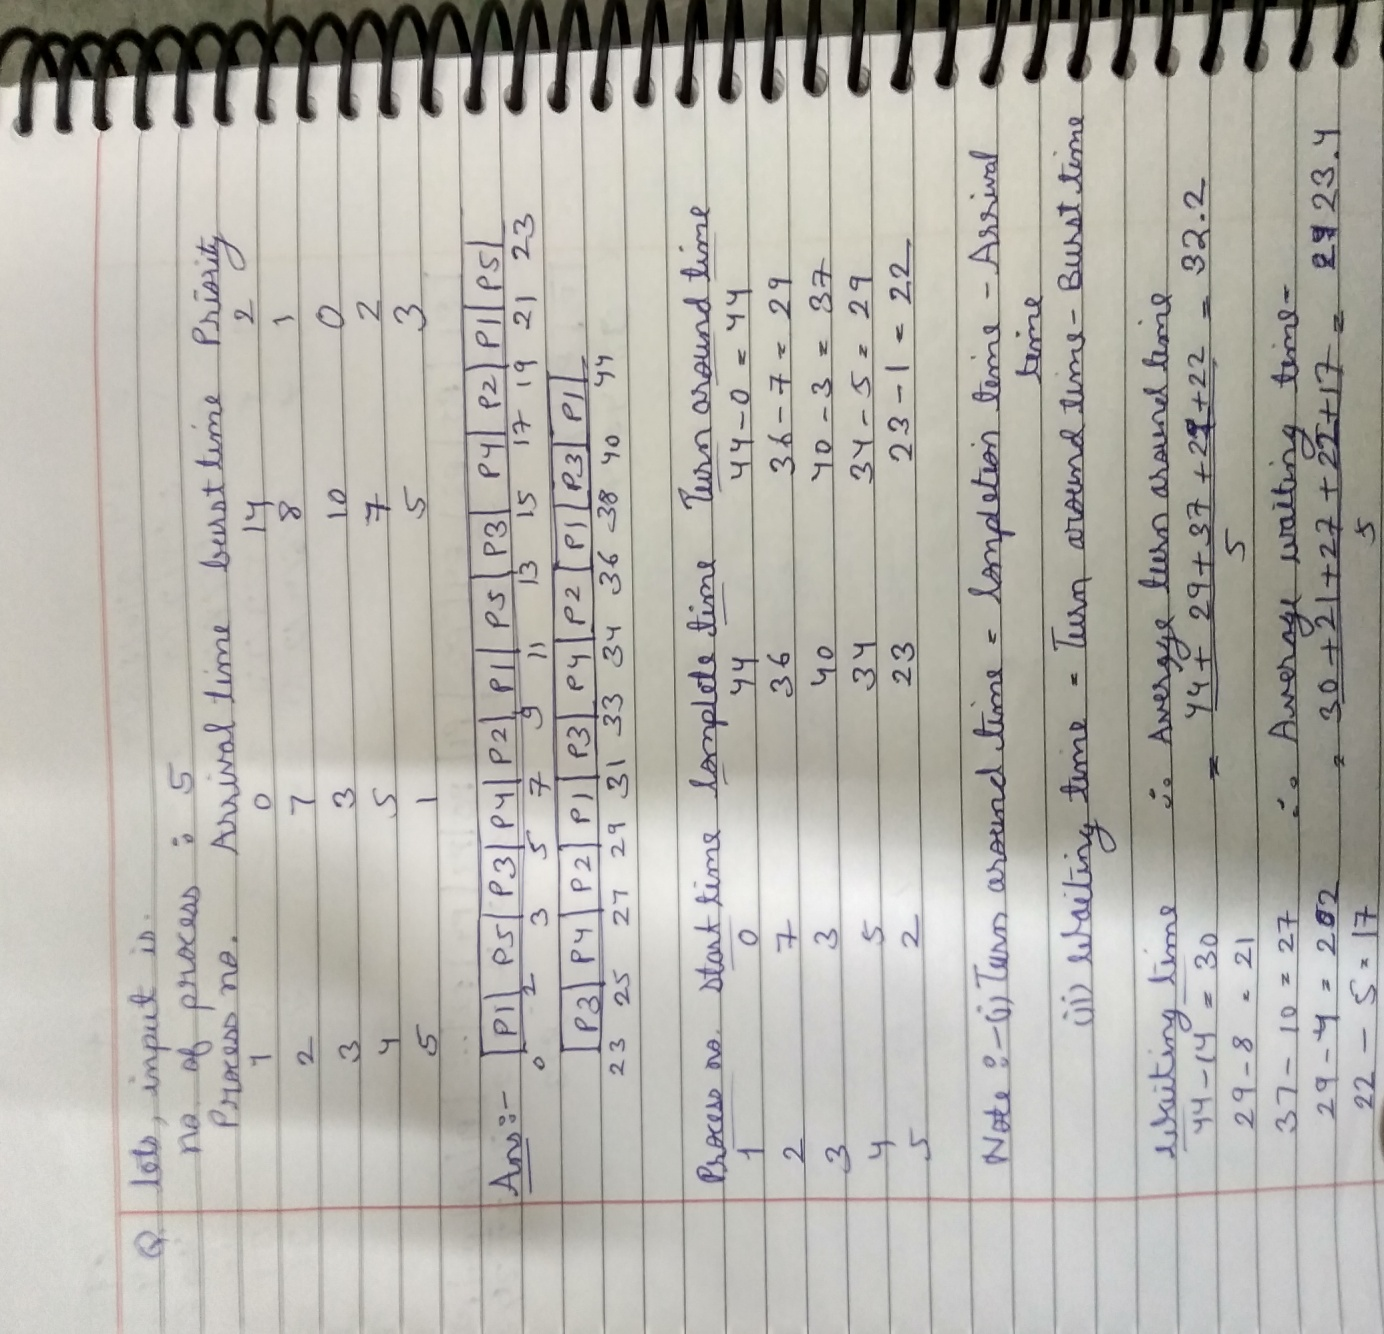 Q. lets, input is.
no of process : 5
Process no. Arrival time burst time Priority
1 0 14 2
2 7 8 1
3 3 10 0
4 5 7 2
5 1 5 3
Ans:- |P1|P5|P3|P4|P2|P1|P5|P3|P4|P2|P1|P5|
0 2 3 5 7 9 11 13 15 17 19 21 23
|P3|P4|P2|P1|P3|P4|P2|P1|P3|P1|
23 25 27 29 31 33 34 36 38 40 44
Process no. start time Complete time Turn around time
1 0 44 44-0=44
2 7 36 36-7=29
3 3 40 40-3=37
4 5 34 34-5=29
5 2 23 23-1=22
Note:-(i) Turn around time = Completion time - Arrival
time
(ii) Waiting time = Turn around time - Burst time
Waiting time ∴ Averge turn around time
44-14=30 = 44+29+37+29+22 = 32.2
29-8=21 5
37-10=27 ∴ Average waiting time-
29-7=22 = 30+21+27+22+17 = 23.4
22-5=17 5